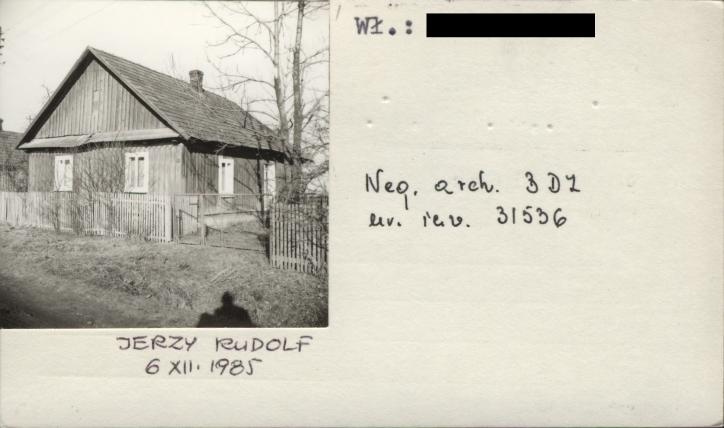 Wł.:
Neg. arch. 3 D1
nr. inw. 31536
JERZY RUDOLF
6 XII. 1985